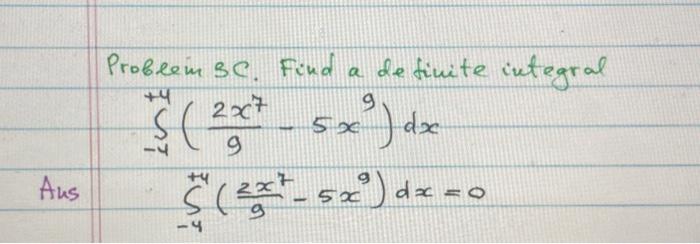 Problem 3C. Find a definite integral
∫₋₄⁺⁴ (2x⁷/9 - 5x⁹) dx
Ans ∫₋₄⁺⁴ (2x⁷/9 - 5x⁹) dx = 0